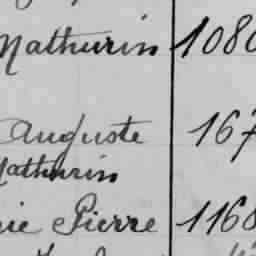 Mathurin 1080
Auguste 167
Mathurin
Pierre 1168